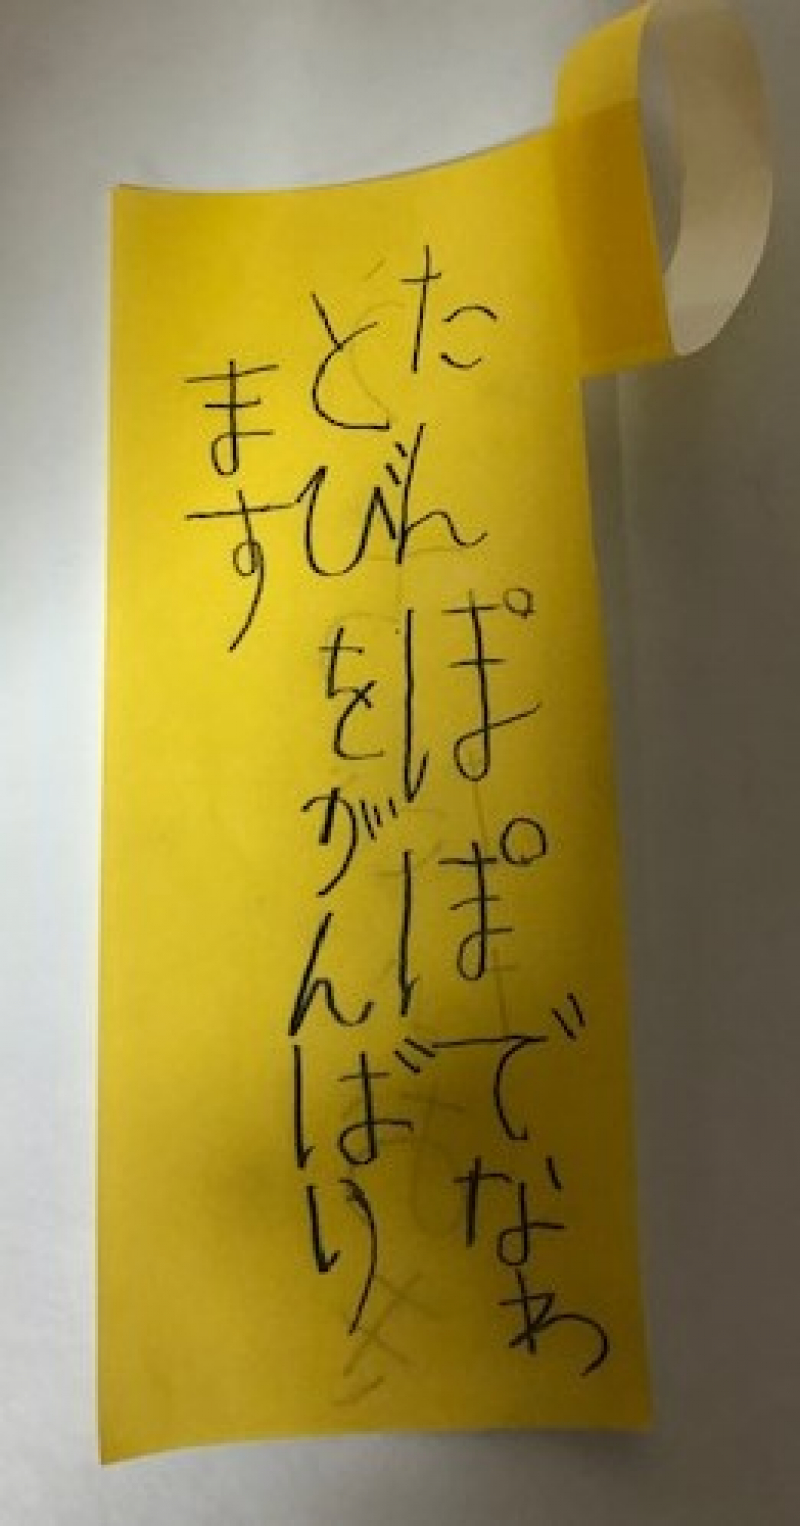 たんぽぽでなわ
とびをがんばり
ます